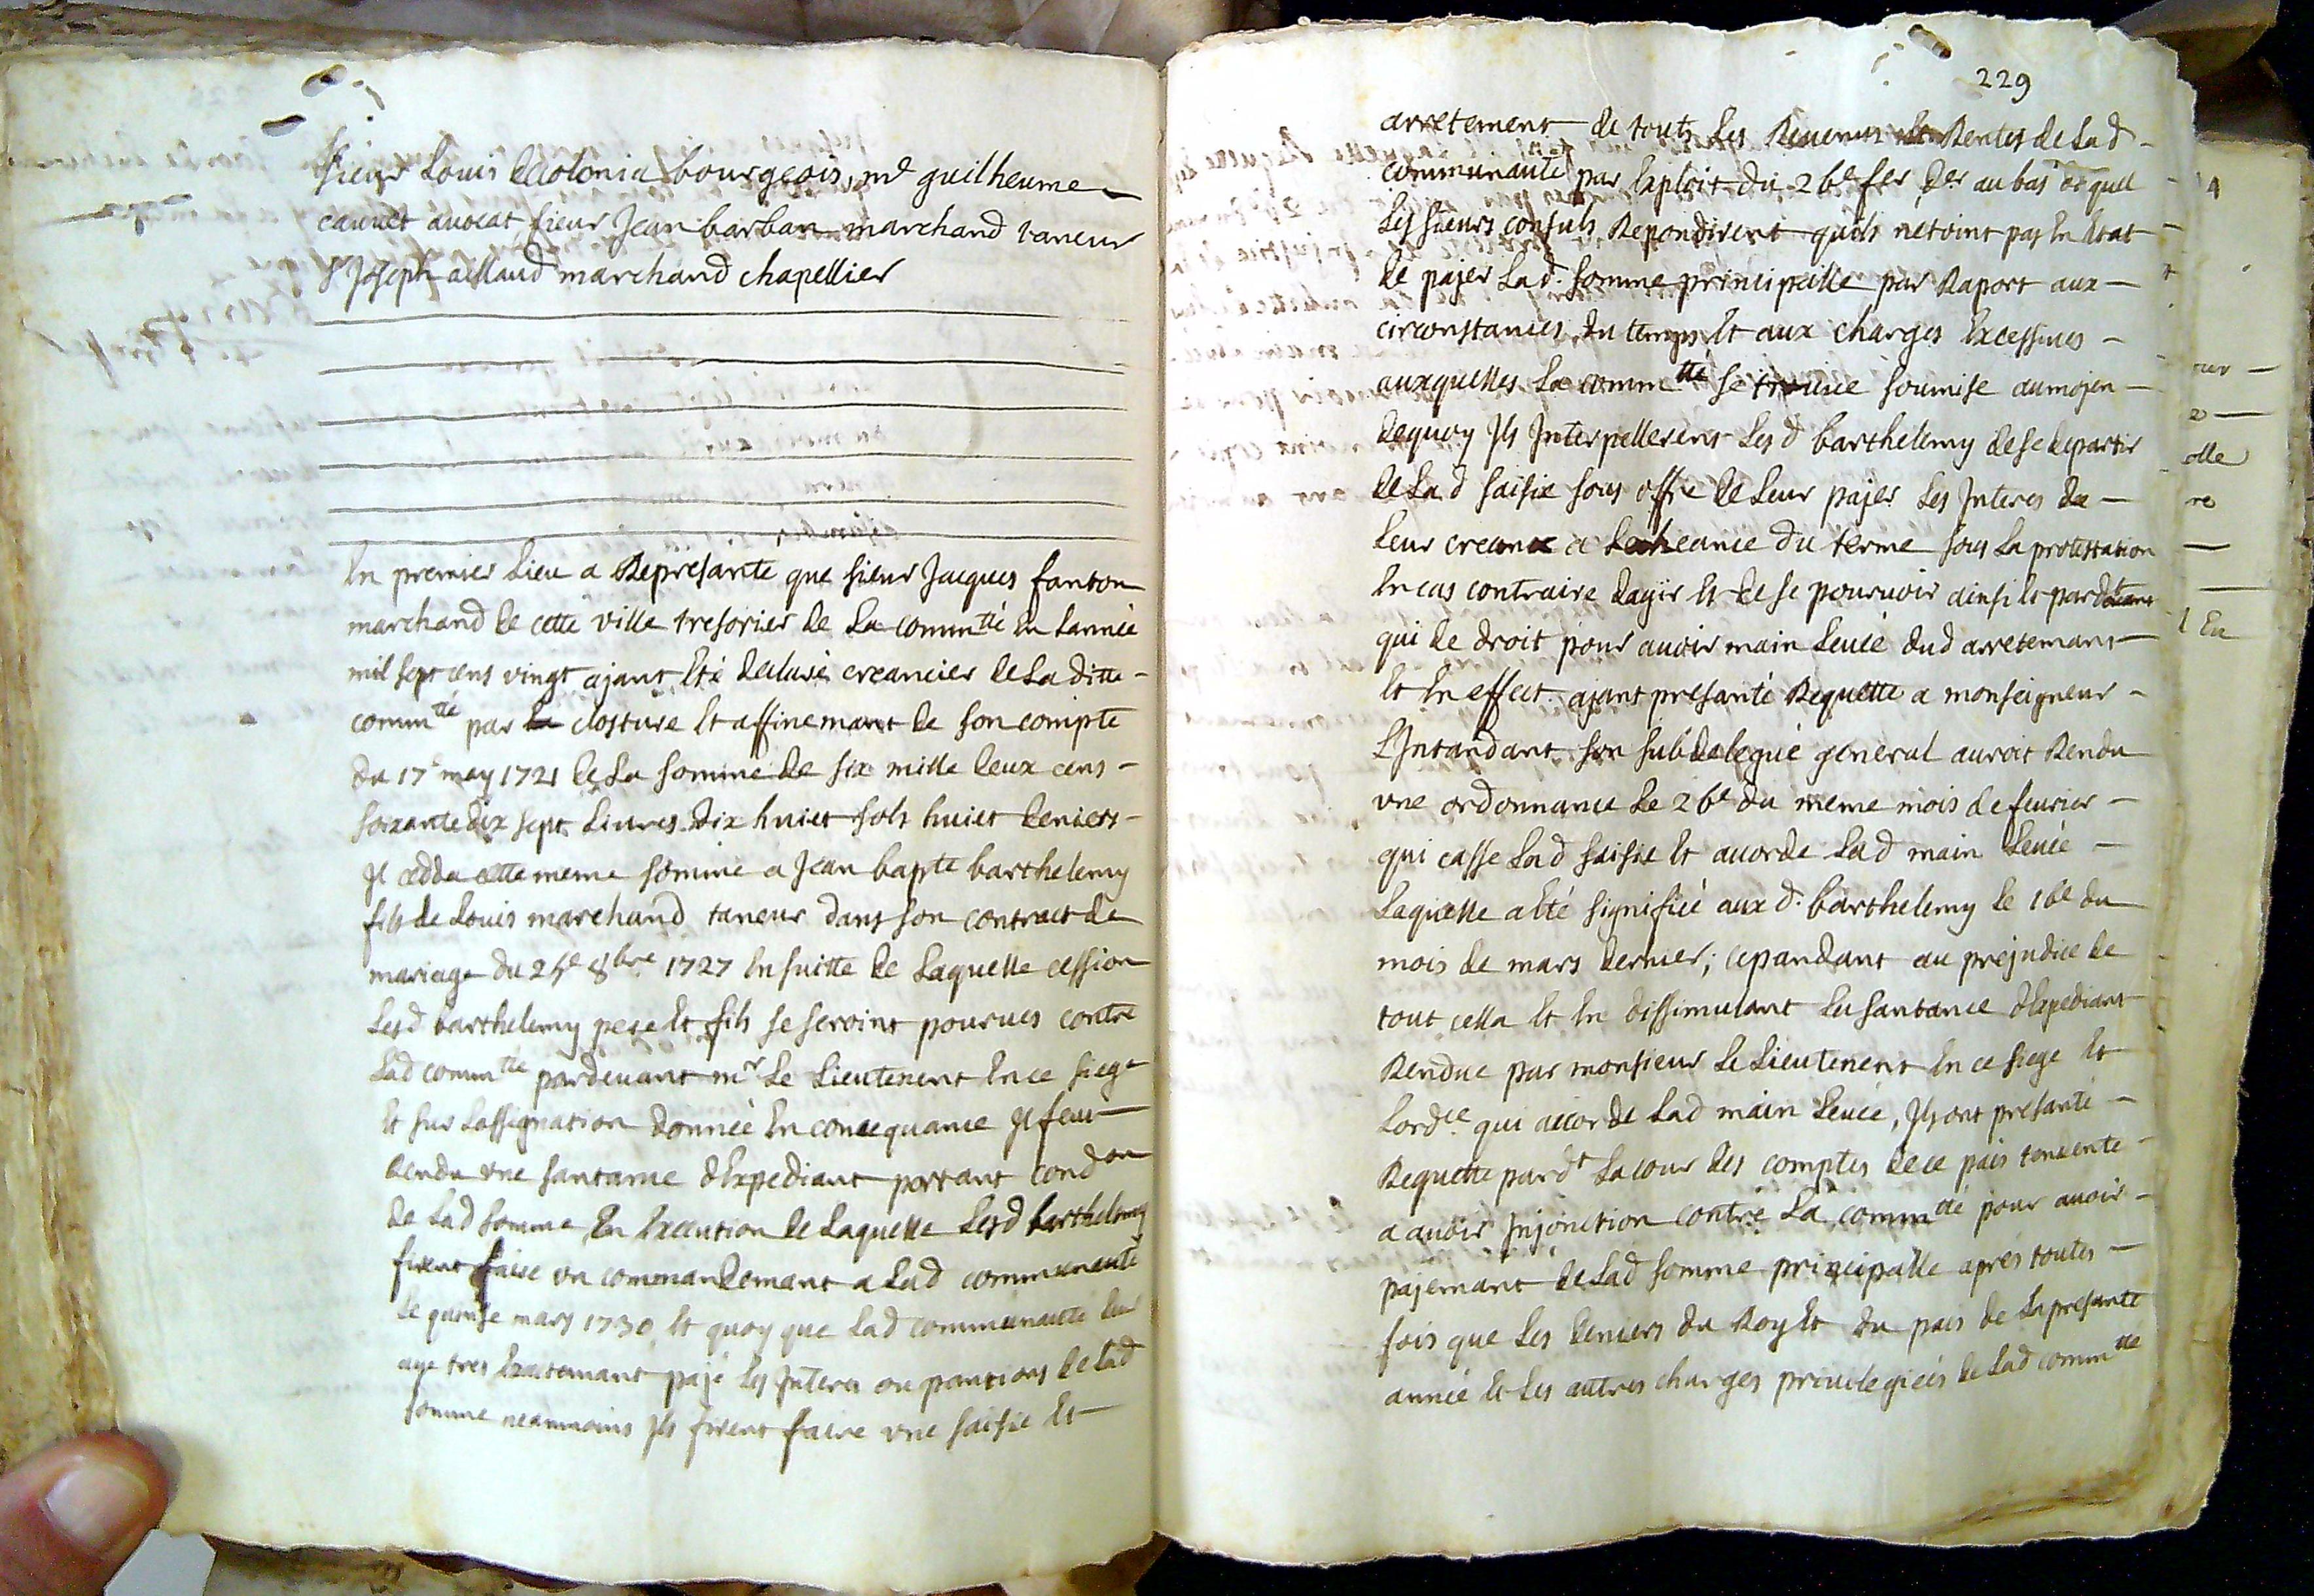 Sieur Louis decolonia bourgeois, me guilheume
cauvet avocat sieur Jean barban marchand taneur
Sr Joseph aillaud marchand chapellier
En premier Lieu a Représanté que sieur Jacques fanton
marchand de cette ville tresorier de La commtté En Lannée
mil sept cens vingt ajant Eté declaré creancier de La ditte
commtté par la closture Et affinemant de son compte
du 17e may 1721 de La somme de six mille deux cens
soixante dix sept Livres dix huict sols huict deniers
Il cedda cette meme somme a Jean bapte barthelemy
fils de Louis marchand taneur dans son contract de
mariage du 25e 8bre 1727 En suitte de Laquelle cession
Lesd barthelemy pere Et fils se seroint pourveus contre
Lad commtté pardevant mr Le Lieutenent En ce siege
Et sur Lassignation donnée En consequance Il feut
Rendu une santance dExpediant portant condon
de Lad somme En Execution de Laquelle Lesd barthelemy
firent faire un commandemant a Lad communauté
Le quinse mars 1730 Et quoy que Lad communauté Leur
aye tres Exactemant pajé Les Interes ou pantions de Lad
somme neanmoins Ils firent faire une saisie Et
229
arretement de touts Les Revenus Et Rentes de Lad
communauté par Exploit du 26e fer der au bas dequel
Les sieurs consuls Repondirent quils nétoint pas En Etat
de pajer Lad. somme principalle par Raport aux
circonstances du temps Et aux charges Excessives
auxquelles La commtté se trouve soumise au mojen
dequoy Ils Interpellerent Lesd barthelemy de se departir
de Lad saisie sous offre de Leur pajer Les Interes de
Leur creance a Lecheance du terme sous La protestation
En cas contraire dagir Et de se pourvoir ainsi Et pardevant
qui de droit pour avoir main Levée dud arretemant
Et En effect ajant presanté Requette a monseigneur
LIntandant son subdelegué general auroit Rendu
une ordonnance Le 26e du meme mois de fevrier
qui casse Lad saisie Et acorde Lad main Levée
Laquelle a Eté signifiée aux d. barthelemy Le 16e du
mois de mars dernier; cepandant au prejudice de
tout cella Et En dissimulant La santance dExpediant
Rendue par monsieur Le Lieutenent En ce siege Et
Lordce qui accorde Lad main Levée, Ils ont presanté
Requette pardt La cour des comptes de ce païs tendente
a avoir Injonction contre La commtté pour avoir
pajemant de Lad somme principalle aprés toutes
fois que Les deniers du Roy Et du païs de La presante
année Et Les autres charges privilegiées de Lad commtté